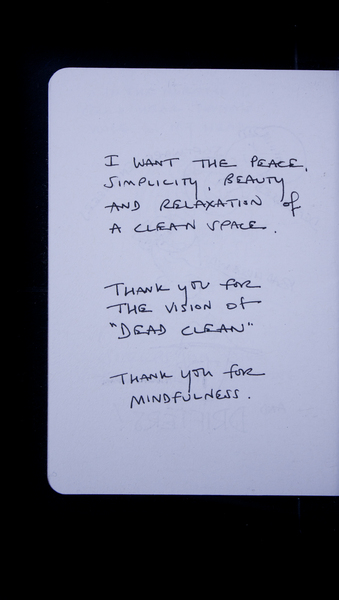 I WANT THE PEACE,
SIMPLICITY, BEAUTY
AND RELAXATION of
A CLEAN SPACE.
THANK YOU FOR
THE VISION OF
"DEAD CLEAN"
THANK YOU FOR
MINDFULNESS.